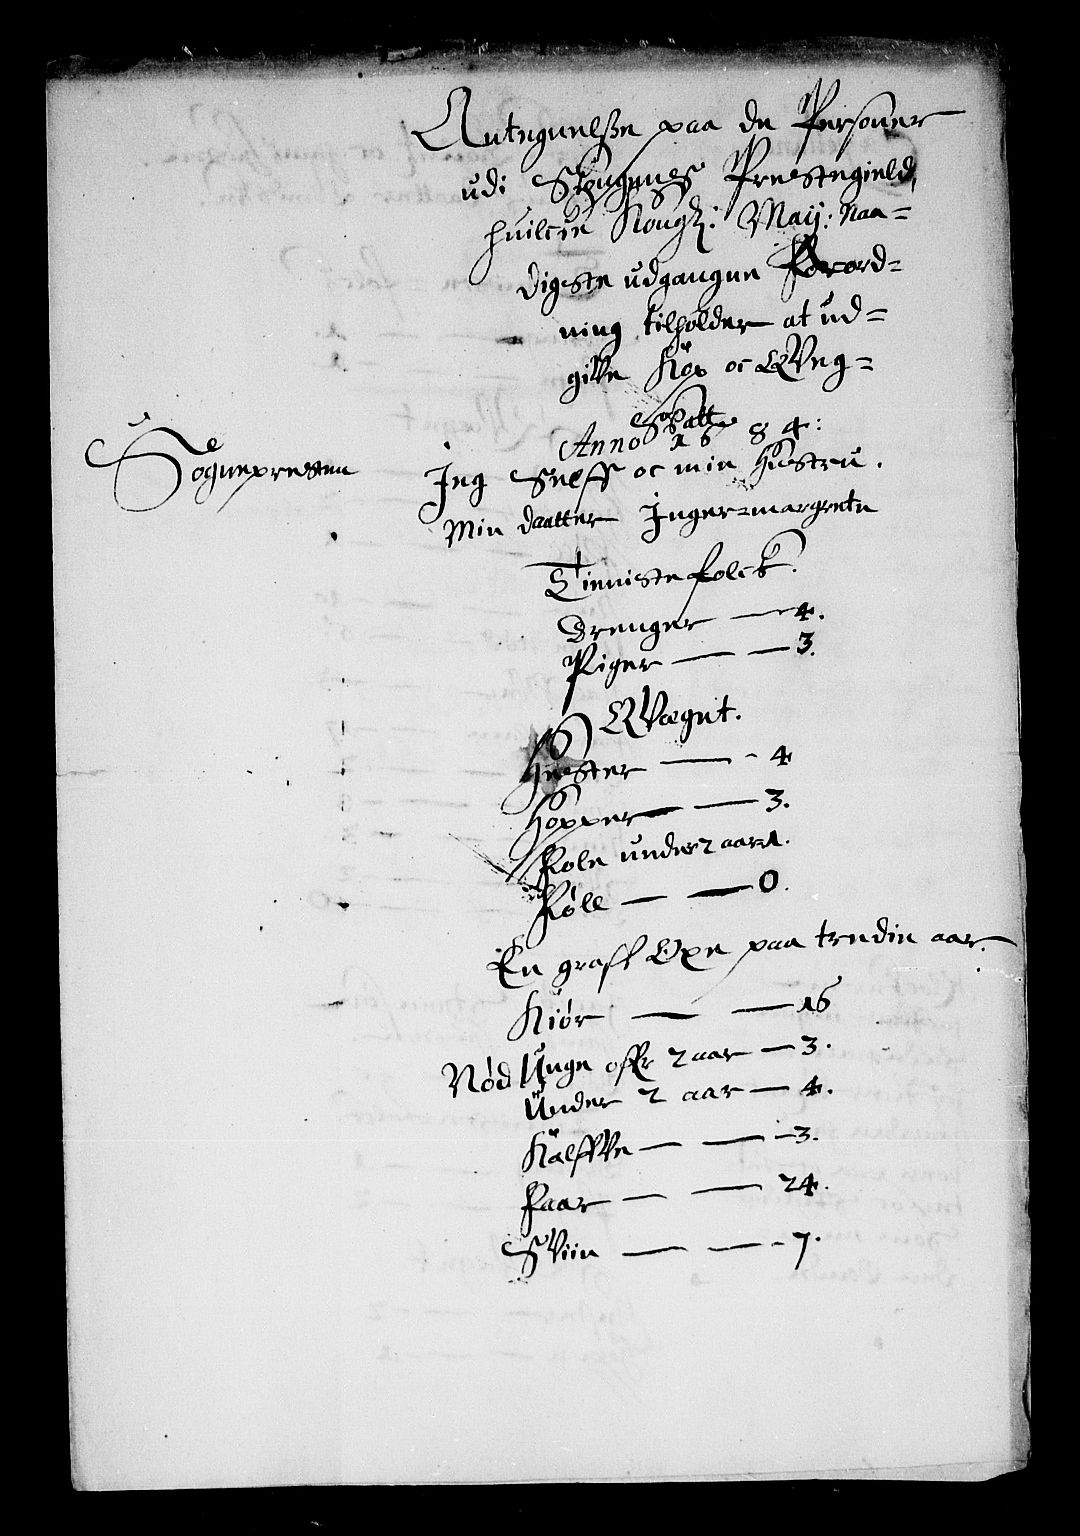 Antegnelsse paa de Personer
udi Skougnes Prestegield,
huilcke Kongl: Maij: Naa=
digeste udgangne Forord=
ning tilholder at ud=
giffve Kop oc QVeg=
Skatt
Anno 1684:
Sognepresten
Jeg Selff oc min Hustru.
Min daatter Jnger=margrete
Tieniste folck.
Drenger — 4.
Piger — — 3.
QVægnt.
Hæster — - 4
Hopper — — 3.
Fole under 2 aar 1.
Føll — — 0.
En graff Oxe paa tredie aar.
Kiør — — 16
Nød Unge offr 2 aar — 3.
Under 2 aar — 4.
Kalffve — — 3.
Faar — — 24.
SViin — — 7.